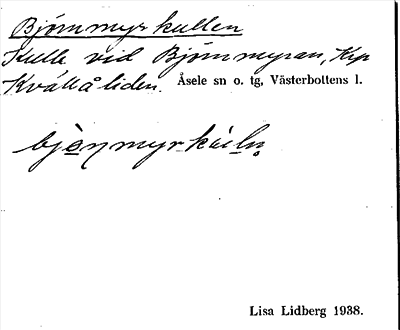 Björnmyrkullen
Kulle vid Björnmyran, Krp
Kvällåliden. Åsele sn o. tg, Västerbottens l.
Lisa Lidberg 1938.